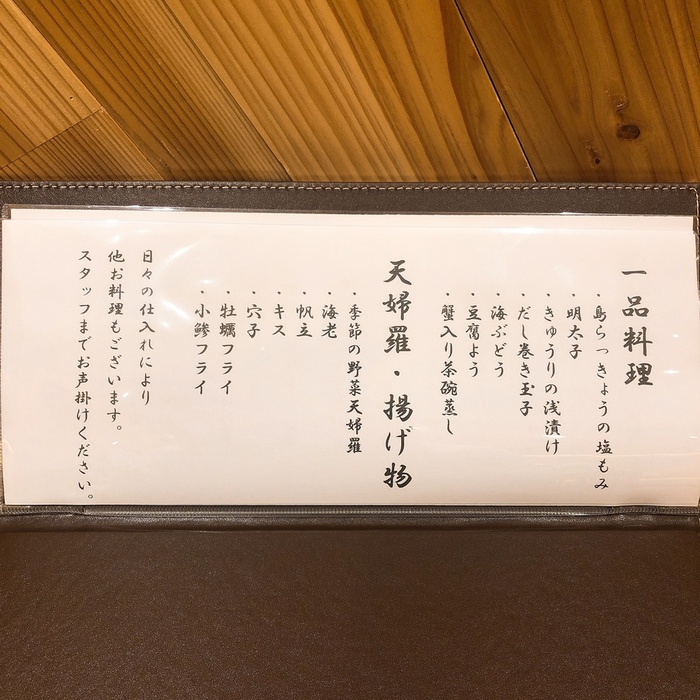 一品料理
・島らっきょうの塩もみ
・明太子
・きゅうりの浅漬け
・だし巻き玉子
・海ぶどう
・豆腐よう
・蟹入り茶碗蒸し
天婦羅・揚げ物
・季節の野菜天婦羅
・海老
・帆立
・キス
・穴子
・牡蠣フライ
・小鯵フライ
日々の仕入れにより
他お料理もございます。
スタッフまでお声掛けください。